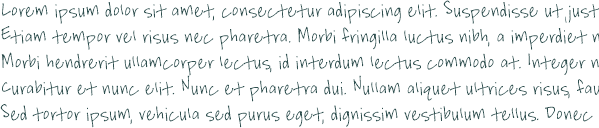 Lorem ipsum dolor sit amet, consectetur adipiscing elit. Suspendisse ut just
Etiam tempor vel risus nec pharetra. Morbi fringilla luctus nibh, a imperdiet n
Morbi hendrerit ullamcorper lectus, id interdum lectus commodo at. Integer n
Curabitur et nunc elit. Nunc et pharetra dui. Nullam aliquet ultrices risus, fau
Sed tortor ipsum, vehicula sed purus eget, dignissim vestibulum tellus. Donec